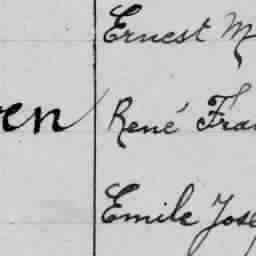 Ernest M
en René Fra
Emile Jose